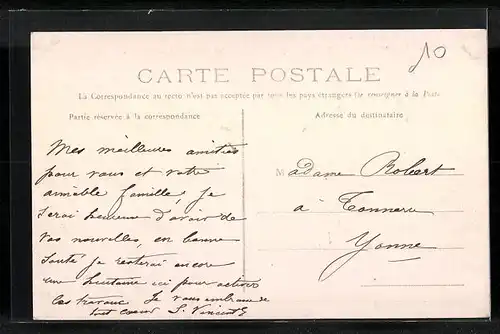 10
CARTE POSTALE
La Correspondance au recto n'est pas acceptée par tous les pays étrangers (Se renseigner à la Poste)
Partie réservée à la correspondance
Adresse du destinataire
Mes meilleures amitiés
pour vous et votre
aimable famille, je
serai heureuse d'avoir de
vos nouvelles, en bonne
santé je resterai encore
une huitaine ici pour activer
les travaux Je vous embrasse de
tout cœur S. Vincent
Madame Robert
à Tonnerre
Yonne